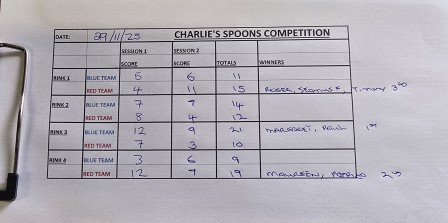 DATE: 29/11/25 CHARLIE'S SPOONS COMPETITION
SESSION 1 SESSION 2
SCORE SCORE TOTALS WINNERS
RINK 1 BLUE TEAM 5 6 11
RED TEAM 4 11 15 3rd
RINK 2 BLUE TEAM 7 7 14
RED TEAM 8 4 12
RINK 3 BLUE TEAM 12 9 21 MARGARET, PAUL 1st
RED TEAM 7 3 10
RINK 4 BLUE TEAM 3 6 9
RED TEAM 12 7 19 MAUREEN,